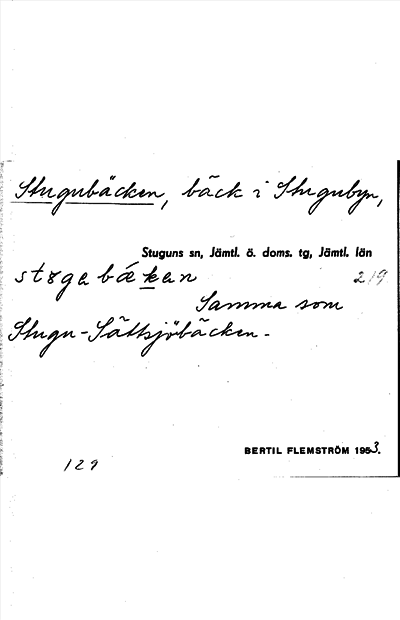 Stugubäcken, bäck i Stugubyn,
Stuguns sn, Jämtl. ö. doms. tg, Jämtl. län
2/9
Samma som
Stugu-Sättsjöbäcken.
BERTIL FLEMSTRÖM 1953.
129